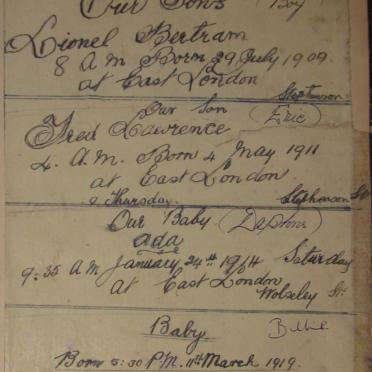 Our Sons (Boy)
Lionel Bertram
8 A M Born 29 July 1909
at East London
Stephenson
Our Son (Eric)
Fred Lawrence
4. A.M. Born 4 May 1911
at East London
Thursday. Stephenson St
Our Baby (Daphne)
ada
9:35 A M January 24th 1914 Saturday
at East London
Wolseley St.
Baby Billie
Born 5:30 P.M. 11th March 1919.